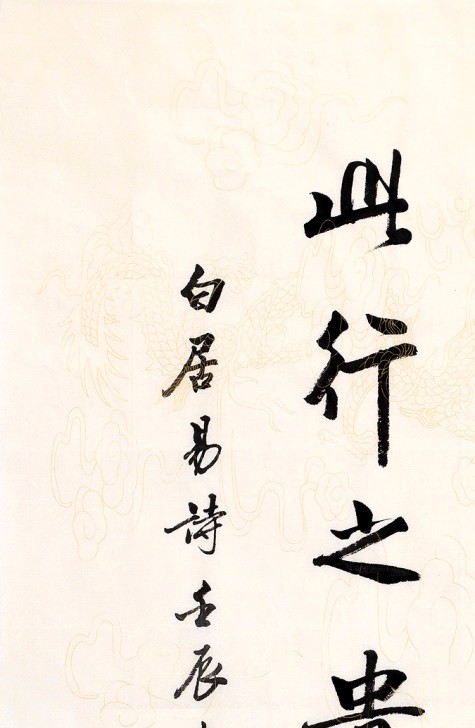 此行之貴
白居易詩壬辰